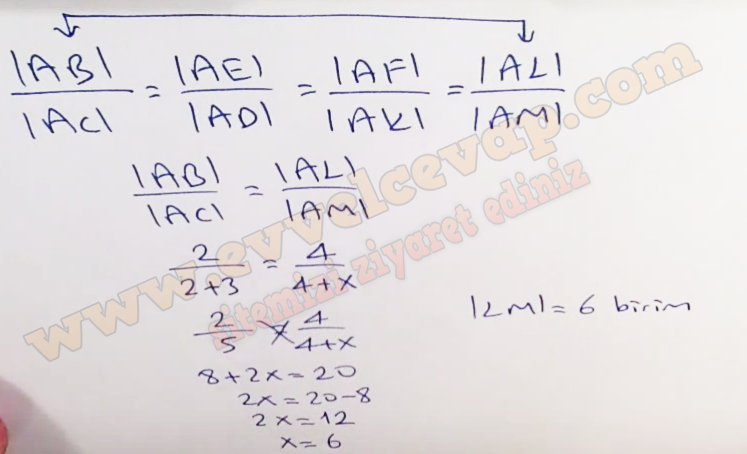 |AB|/|AC| = |AE|/|AD| = |AF|/|AK| = |AL|/|AM|
|AB|/|AC| = |AL|/|AM|
2/2+3 = 4/4+x
2/5 × 4/4+x
8+2x=20
2x=20-8
2x=12
x=6
|LM|=6 birim
www.evvelcevap.com
sitemizi ziyaret ediniz